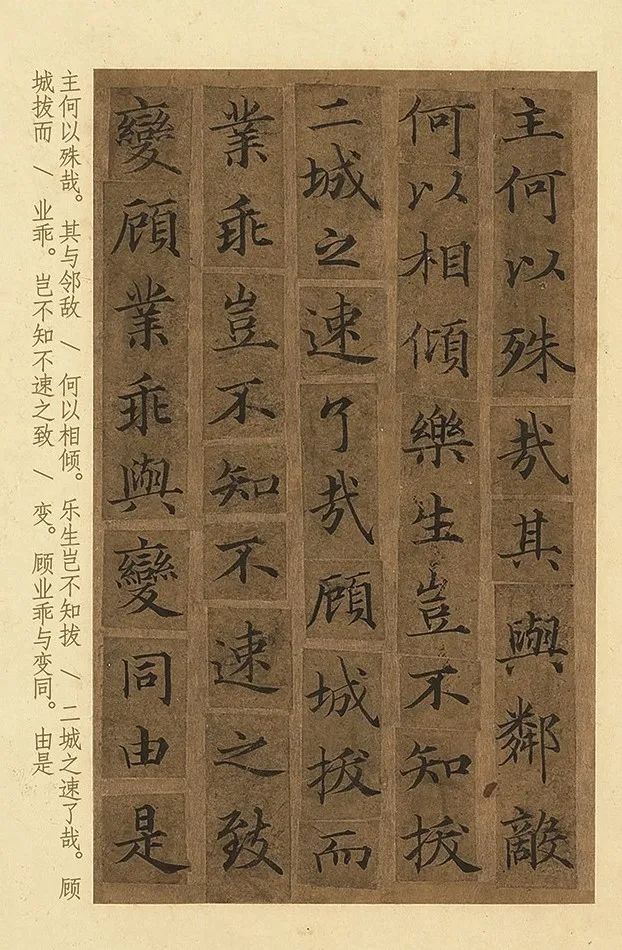 主何以殊哉其與鄰敵
何以相傾樂生豈不知拔
二城之速了哉顧城拔而
業乖豈不知不速之致
變顧業乖與變同由是
主何以殊哉。其与邻敌 \ 何以相倾。乐生岂不知拔 \ 二城之速了哉。顾
城拔而 \ 业乖。岂不知不速之致 \ 变。顾业乖与变同。由是